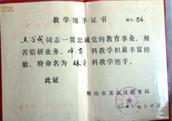 教学能手证书
编号: 56
王万成同志一贯忠诚党的教育事业，刻
苦钻研业务，体育科教学积累丰富经
验，特命名为体育科教学能手。
此证
鞍山市 区教育局